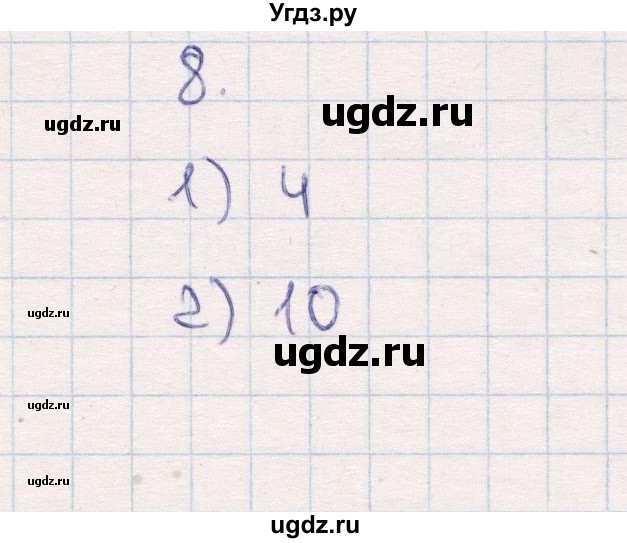 Угдз.ру
8.
ugdz.ru
ugdz.ru
1) 4
2) 10
ugdz.ru
ugdz.ru
ugdz.ru
ugdz.ru
ugdz.ru